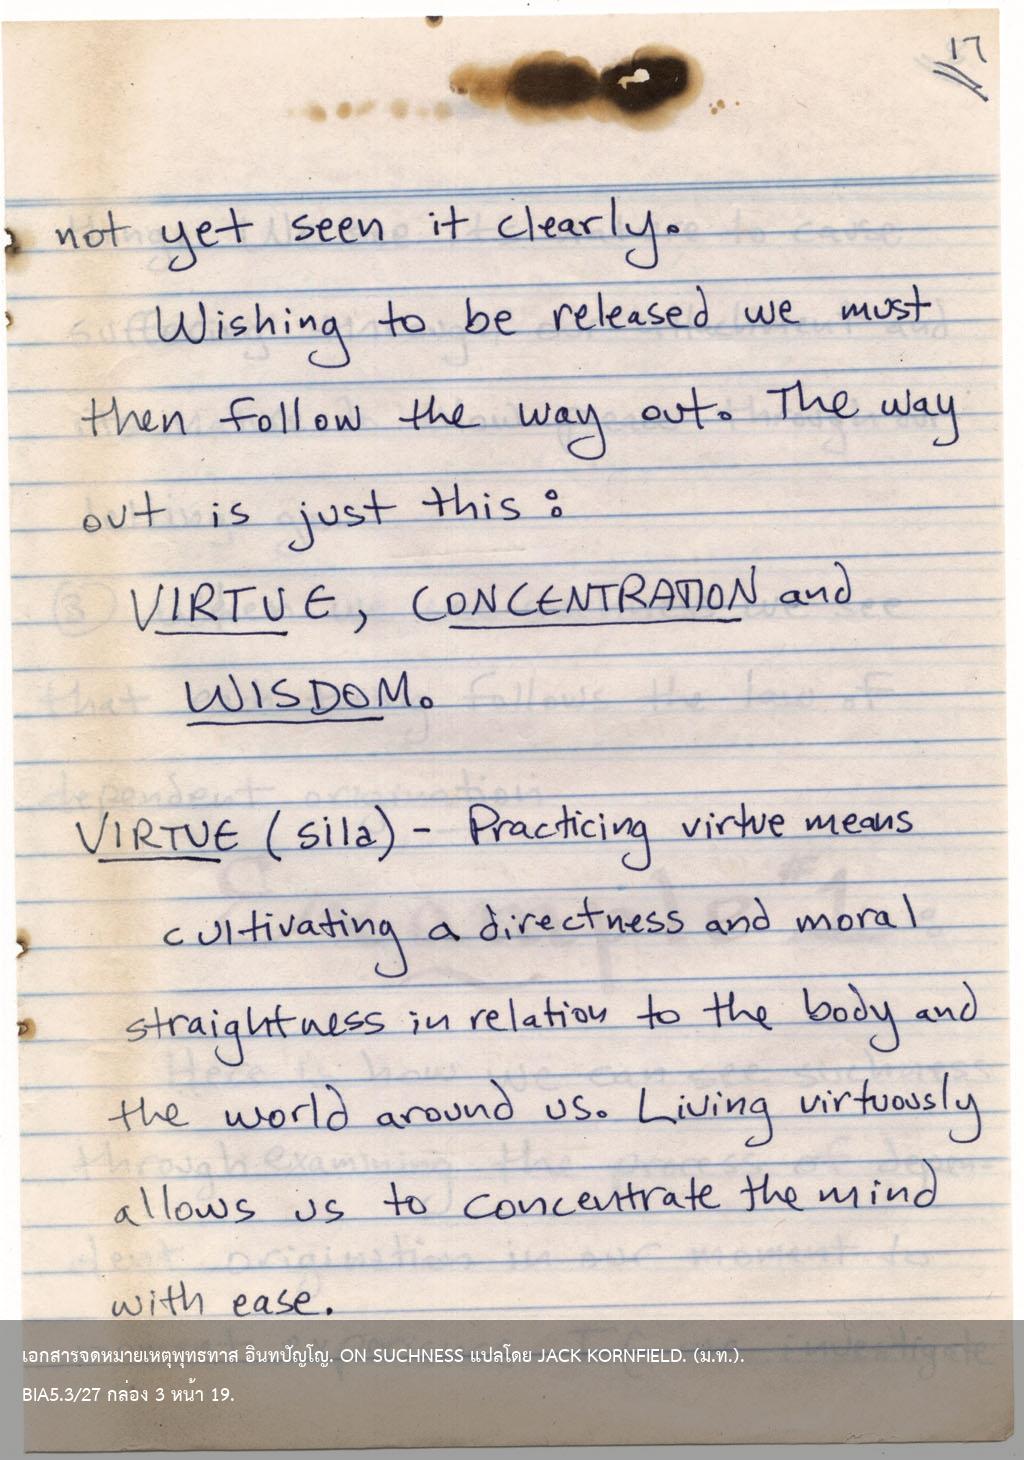 17
not yet seen it clearly.
Wishing to be released we must
then follow the way out. The way
out is just this :
VIRTUE, CONCENTRATION and
WISDOM.
VIRTUE (sila) - Practicing virtue means
cultivating a directness and moral
straightness in relation to the body and
the world around us. Living virtuously
allows us to concentrate the mind
with ease.
เอกสารจดหมายเหตุพุทธทาส อินทปัญโญ. ON SUCHNESS แปลโดย JACK KORNFIELD. (ม.ท.).
BIA5.3/27 กล่อง 3 หน้า 19.